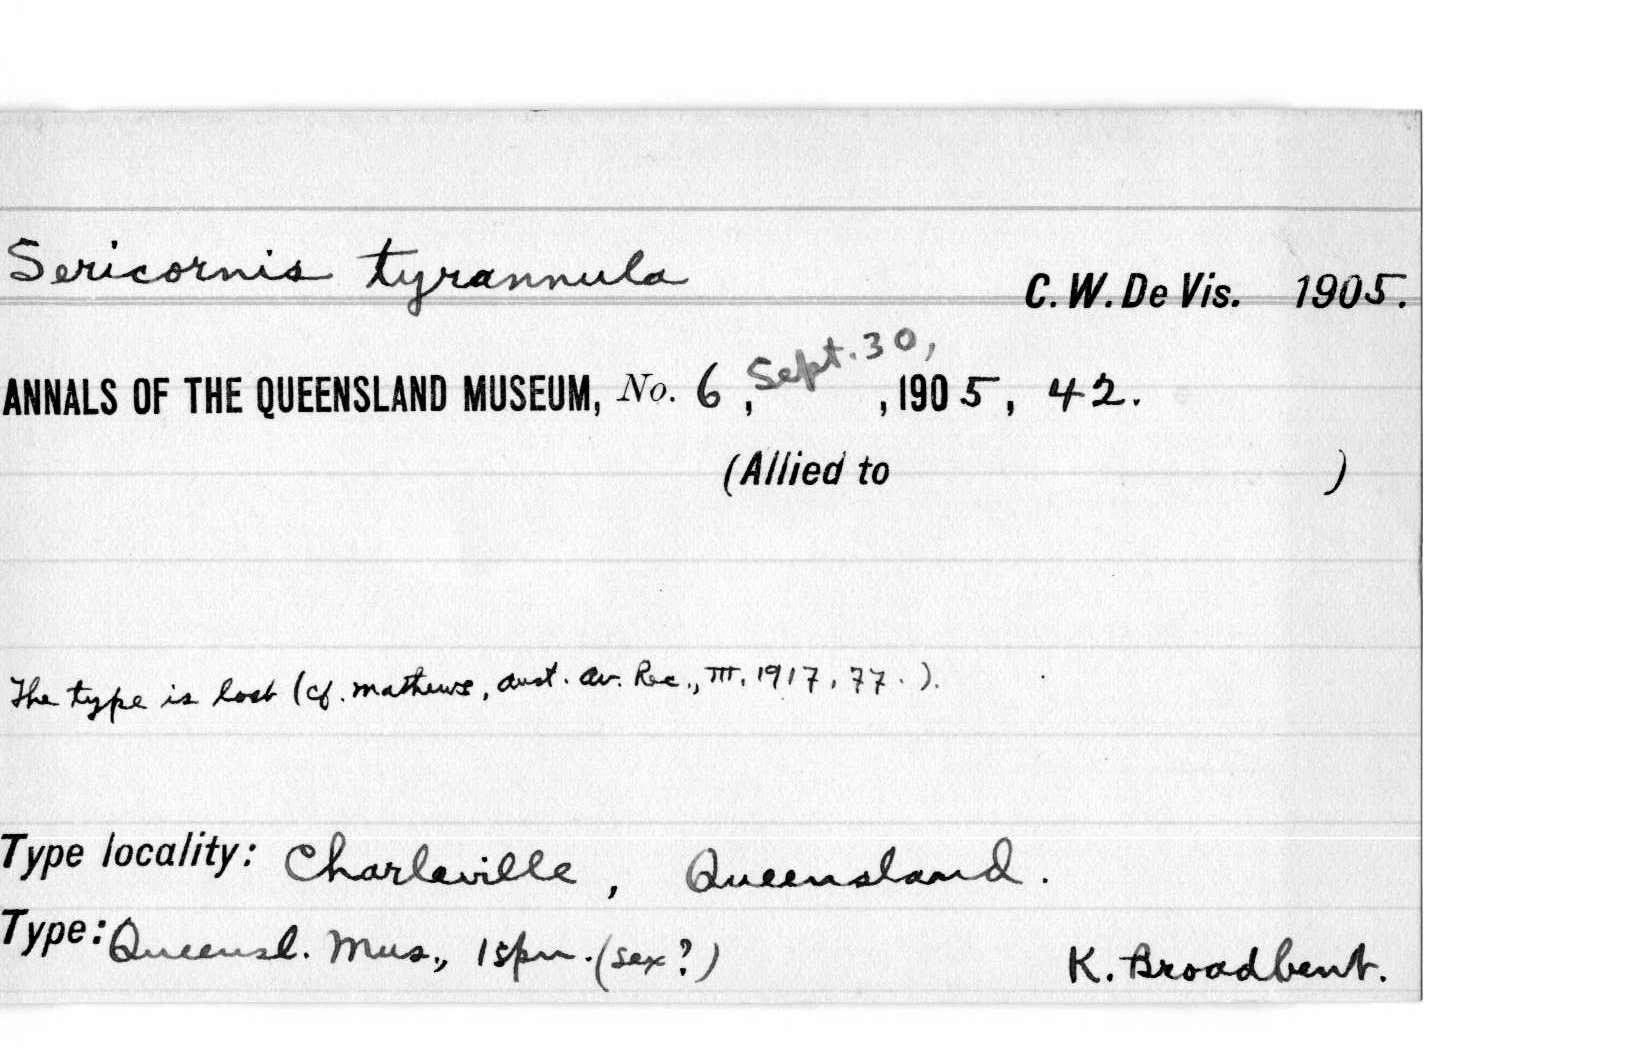 Sericornis tyrannula
C. W. De Vis. 1905.
ANNALS OF THE QUEENSLAND MUSEUM, No. 6, Sept. 30, , 1905, 42.
(Allied to )
The type is lost (cf. Mathews, Aust. Av. Rec., III, 1917, 77.).
Type locality: Charleville, Queensland.
Type: Queensl. Mus., 1 spn. (sex?) K. Broadbent.